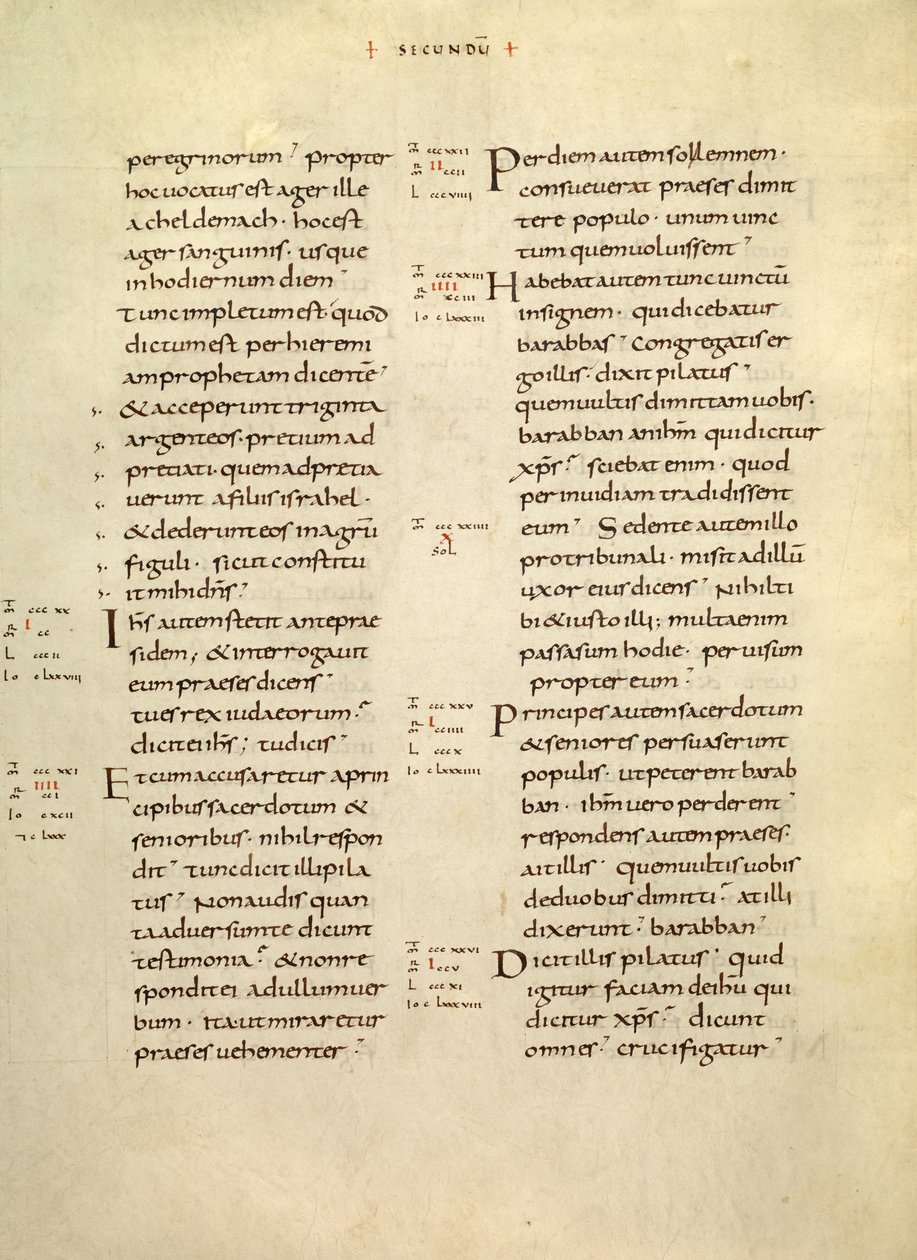 + SECUNDŪ +
peregrinorum propter
hoc uocatus est ager ille
acheldemach· hoc est
ager sanguinis· usque
in hodiernum diem
Tunc impletum est· quod
dictum est per hieremi
am prophetam dicentē
& acceperunt triginta
argenteos· pretium ad
pretiati· quem adpretia
uerunt a filiis israhel·
& dederunt eos in agrū
figuli· sicut constitu
it mihi dn̄s
m̄ ccc xx
I
m̄ cc
L ccc ii
Io c Lxxviii
Ihs̄ autem stetit ante prae
sidem; & interrogauit
eum praeses dicens
tu es rex iudaeorum·
dicit ei ihs̄; tu dicis
m̄ ccc xxi
IIII
m̄ cc i
Io c xcii
c Lxxx
Et cum accusaretur a prin
cipibus sacerdotum &
senioribus· nihil respon
dit tunc dicit illi pila
tus Non audis quan
ta aduersum te dicunt
testimonia· & non re
spondit ei ad ullum uer
bum· ita ut miraretur
praeses uehementer
m̄ ccc xxii
II
m̄ cc ii
L ccc uiiii
Per diem autem sollemnem·
consueuerat praeses dimit
tere populo· unum uinc
tum quem uoluissent
m̄ ccc xxiii
IIII
m̄ cc iii
Io c Lxxxiii
Habebat autem tunc uinctū
insignem· qui dicebatur
barabbas Congregatis er
go illis· dixit pilatus
quem uultis dimittam uobis·
barabban an ihm̄ qui dicitur
xp̄s· sciebat enim· quod
per inuidiam tradidissent
m̄ ccc xxiiii
X
sol
eum Sedente autem illo
pro tribunali· misit ad illū
uxor eius dicens Nihil ti
bi & iusto illi; multa enim
passa sum hodie· per uisum
propter eum
m̄ ccc xxv
I
cc iiii
L ccc x
Io c Lxxxiiii
Principes autem sacerdotum
& seniores persuaserunt
populis· ut peterent barab
ban· ihm̄ uero perderent
respondens autem praeses·
ait illis· quem uultis uobis
de duobus dimitti· at illi
dixerunt· barabban
m̄ ccc xxvi
I
m̄ cc v
L ccc xi
Io c Lxxxviii
Dicit illis pilatus· quid
igitur faciam de ihū qui
dicitur xp̄s· dicunt
omnes· crucifigatur